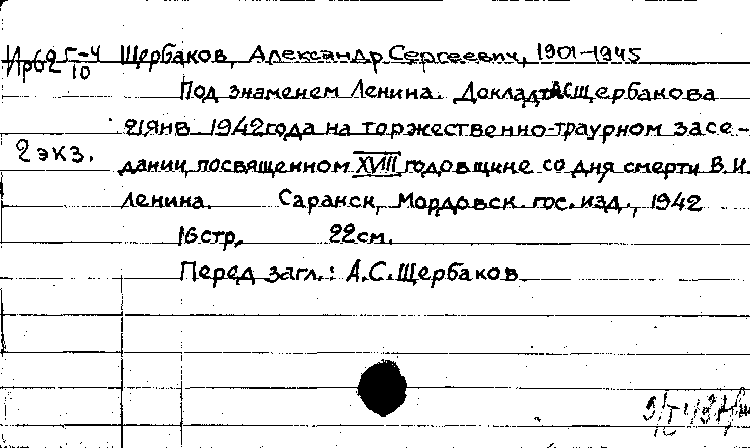 Ир62 Г-4/10 Щербаков, Александр Сергеевич, 1901-1945
Под знаменем Ленина. Доклад т. А.С. Щербакова
21 янв. 1942 года на торжественно-траурном засе-
2 экз.
дании, посвященном XVIII годовщине со дня смерти В.И.
Ленина. Саранск, Мордовск. гос. изд., 1942
16 стр. 22 см.
Перед загл.: А.С. Щербаков